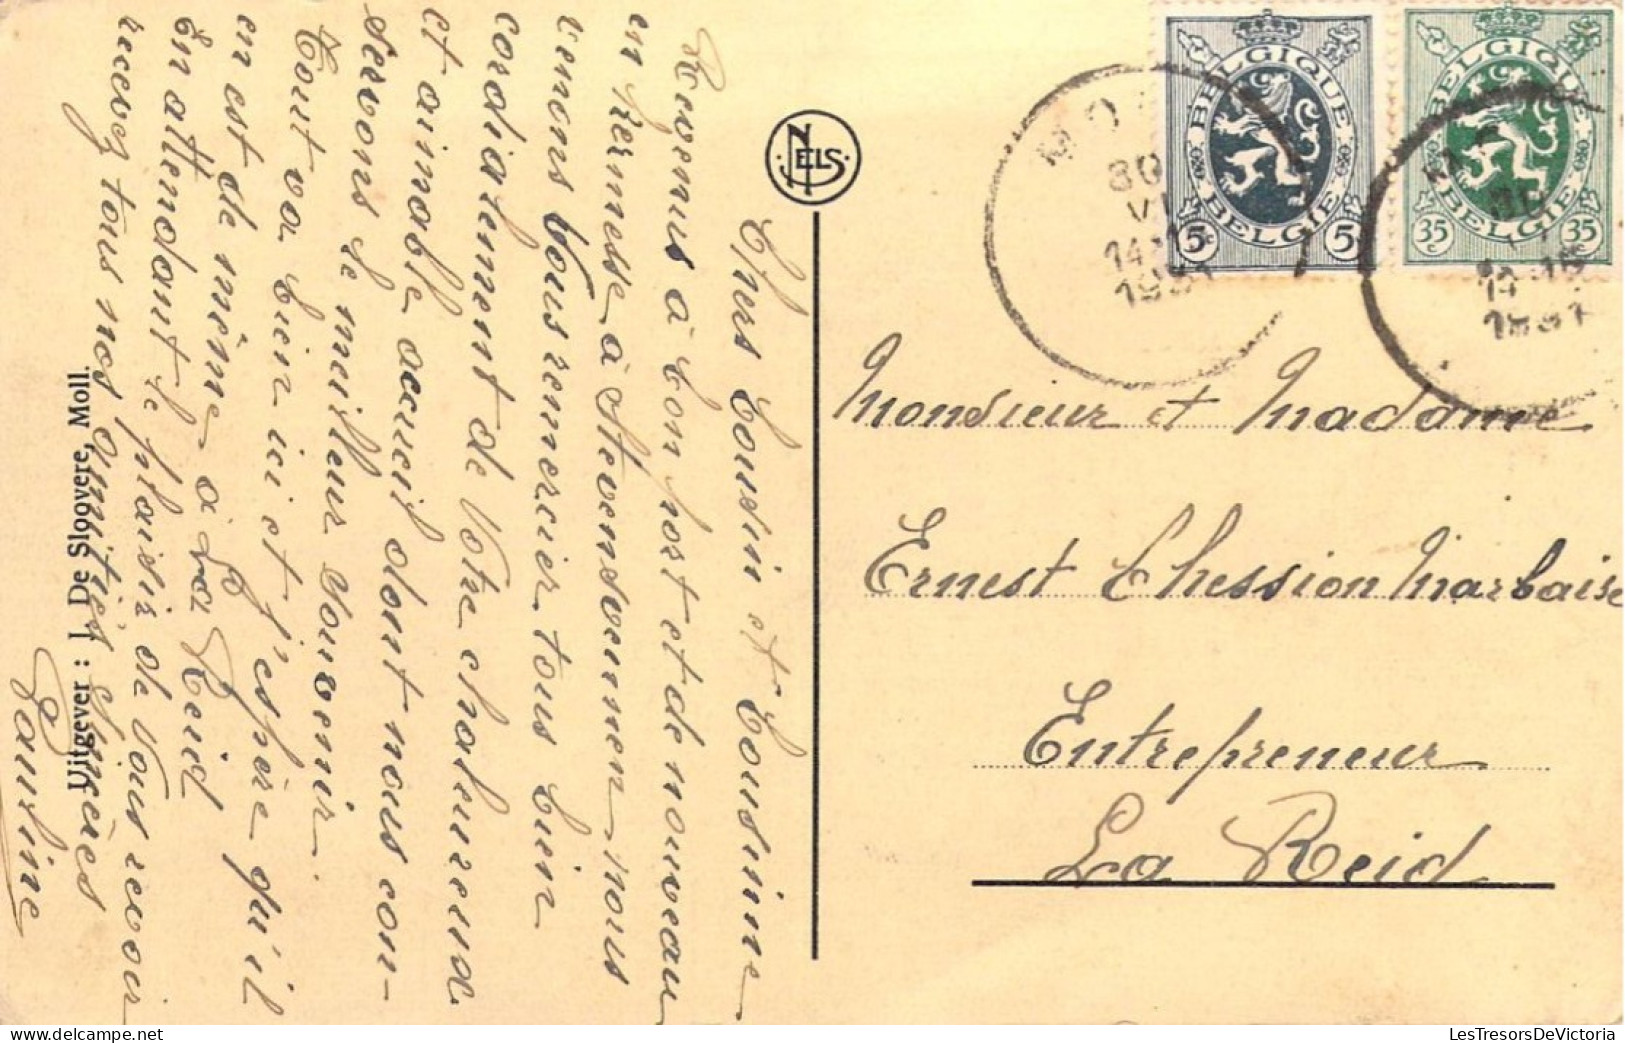 Chers Cousin et Cousine
Revenus à bon port et de nouveau
en kermesse à Stevensvennen nous
venons Vous remercier tous bien
cordialement de Votre chaleureux
et aimable accueil dont nous con-
servons le meilleur souvenir.
Tout va bien ici et j'espère qu'il
en est de même à La Reid
En attendant le plaisir de Vous revoir
recevez tous nos amitiés sincères
Pauline
Uitgever : J. De Sloovere, Moll.
NELS
BELGIQUE
BELGIE
5 5
BELGIQUE
BELGIE
35 35
1931
Monsieur et Madame
Ernest Chession Marbaise
Entrepreneur
La Reid
LesTresorsDeVictoria